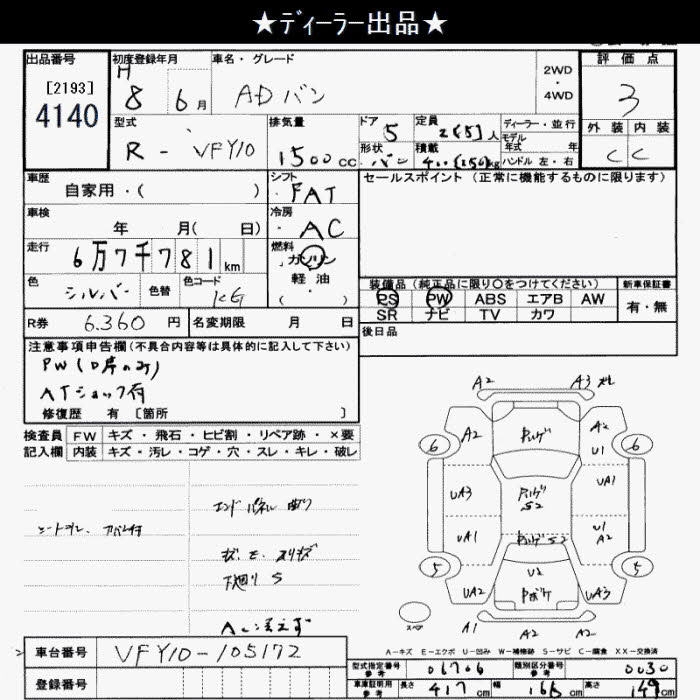 ★ディーラー出品★
出品番号
[2193]
4140
初度登録年月
H 8 6月
車名・グレード
ADバン
2WD
・
4WD
評価点
3
型式
R- VFY10
排気量
1500cc
ドア
5
形状
バン
定員
2(5)人
積載
400(250)kg
ディーラー・並行
モデル
年式 年
ハンドル 左・右
外装 内装
C C
車歴
自家用・( )
シフト
FAT
セールスポイント (正常に機能するものに限ります)
車検
年 月( 日)
冷房
AC
走行
6万7千781km
燃料
ガソリン
軽油
( )
色
シルバー
色替
色コード
KG
装備品(純正品に限り○をつけてください)
PS PW ABS エアB AW
SR ナビ TV カワ
新車保証書
有・無
R券 6.360 円
名変期限 月 日
後日品
注意事項申告欄(不具合内容等は具体的に記入して下さい)
ATショック有
修復歴 有 [箇所 ]
検査員
記入欄
FW キズ・飛石・ヒビ割・リペア跡・×要
内装 キズ・汚レ・コゲ・穴・スレ・キレ・破レ
エンドパネル 曲り
下廻り S
A2 A3
6 A2 A2 6
U1
UA3 S2 UA1
UA1 S2 U1
A2
5 U2 5
UA2 UA3
スペア
A1 A2 A2
A-キズ E-エクボ U-凹み W-補修跡 S-サビ C-腐食 XX-交換済
車台番号 VFY10-105172
登録番号
型式指定番号
参考
06706
類別区分番号
参考
0030
車庫証明用
参考
長さ 417cm 幅 166cm 高さ 149cm